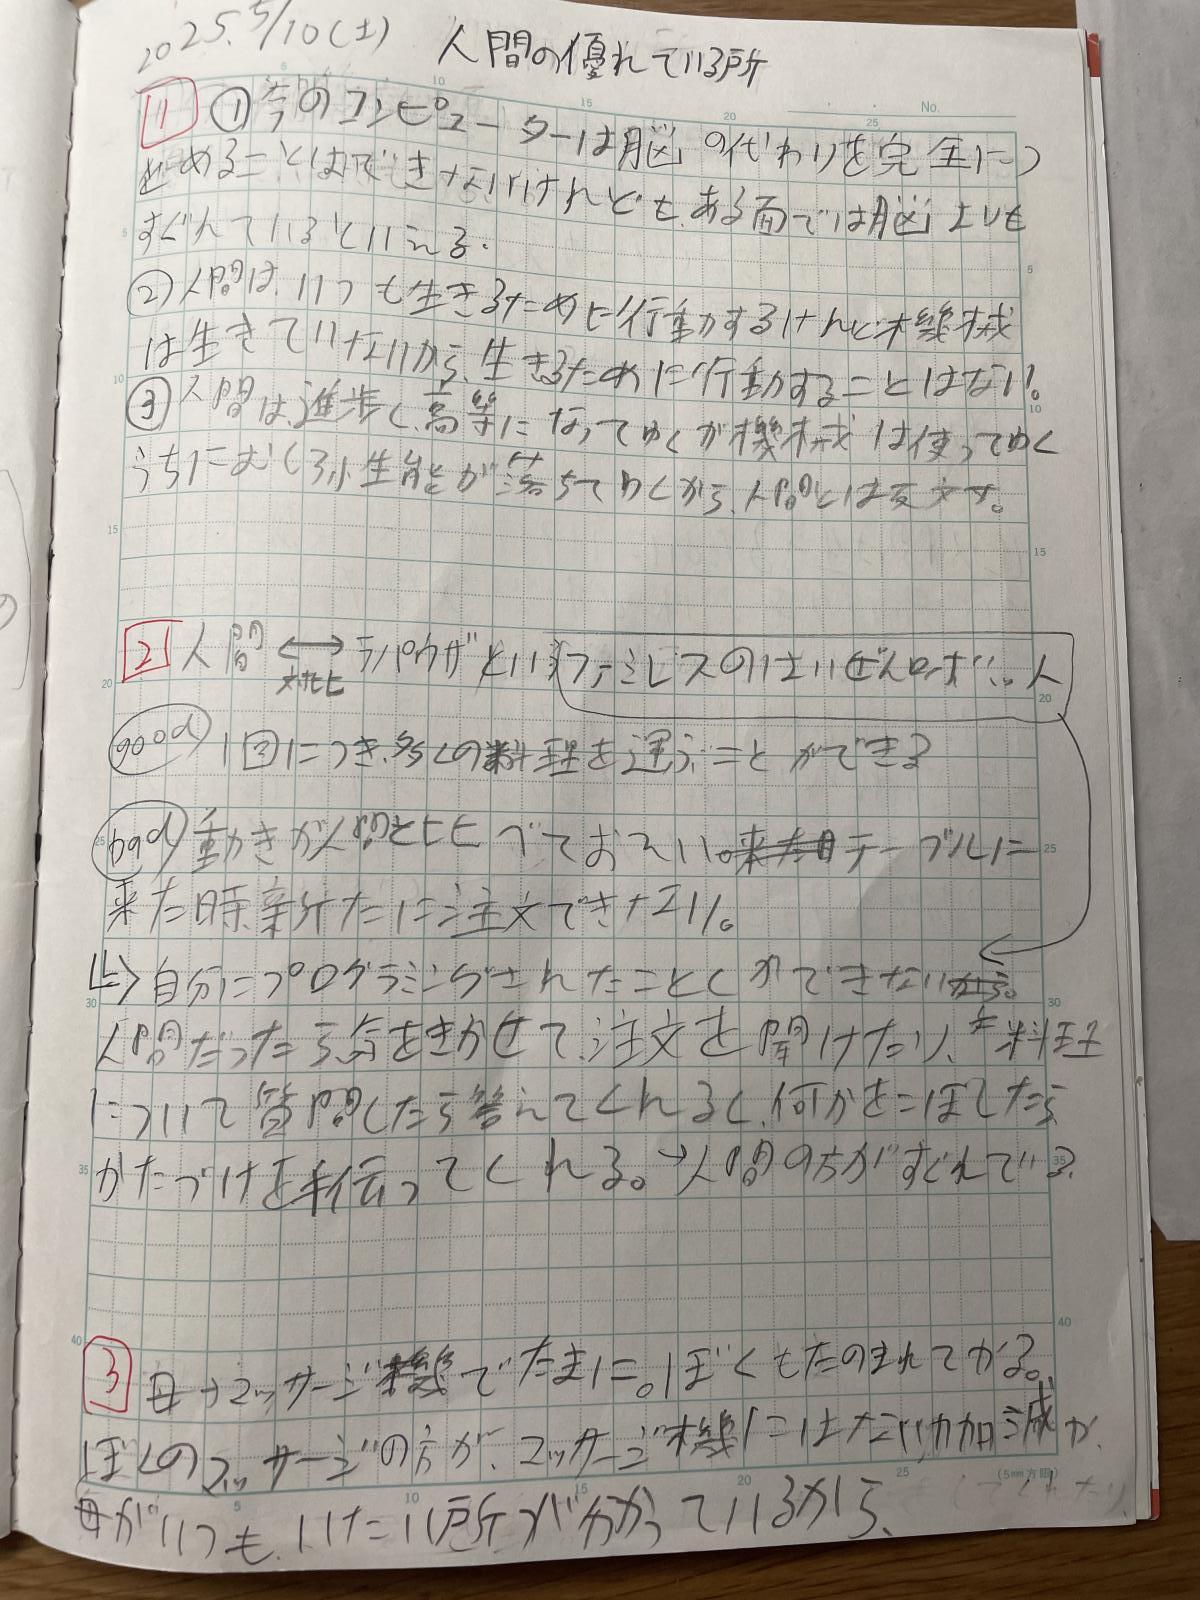 2025.5/10(土) 人間の優れている所
1 ①今のコンピューターは脳の代わりを完全につ
とめることはできないけれども、ある面では脳よりも
すぐれているといえる.
②人間は、いつも生きるために行動するけれど機械
は生きていないから、生きるために行動することはない。
③人間は、進歩し、高等になってゆくが機械は使ってゆく
うちにむしろ、性能が落ちてゆくから、人間とは
2 人間 ⟷ ラパウザというファミレスのはいぜんロボ
対比
good 1回につき、多くの料理を運ぶことができる
bad 動きが人間と比べておそい。テーブルに
来た時、新たに注文できない。
↳自分にプログラミングされたことしかできない
人間だったら気をきかせて、注文を聞けたり、料理
について質問したら答えてくれるし、何かをこぼしたら
かたづけを手伝ってくれる。→人間の方がすぐれてる
3 母→マッサージ機でたまに。ぼくもたのまれてやる。
ぼくのマッサージの方が、マッサージ機にはない力加減や
母がいつも、いたい所が分かっているから、
5㎜方眼
No.